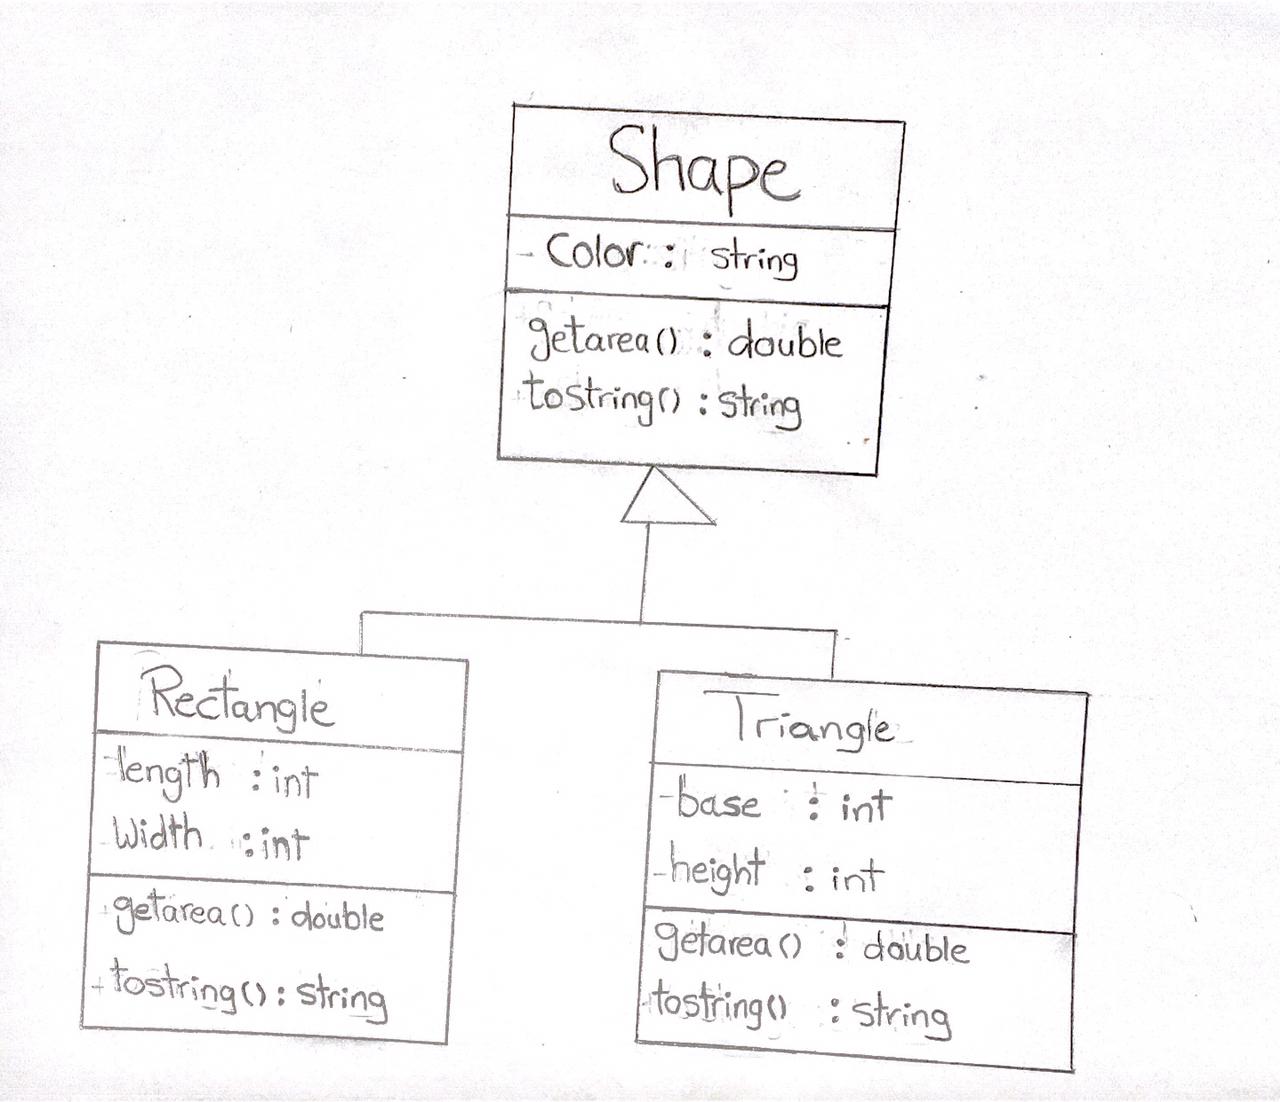 Shape
- Color : string
getarea() : double
+tostring() : string
Rectangle
-length : int
-Width : int
+getarea() : double
+tostring() : string
Triangle
-base : int
-height : int
getarea() : double
+tostring() : string